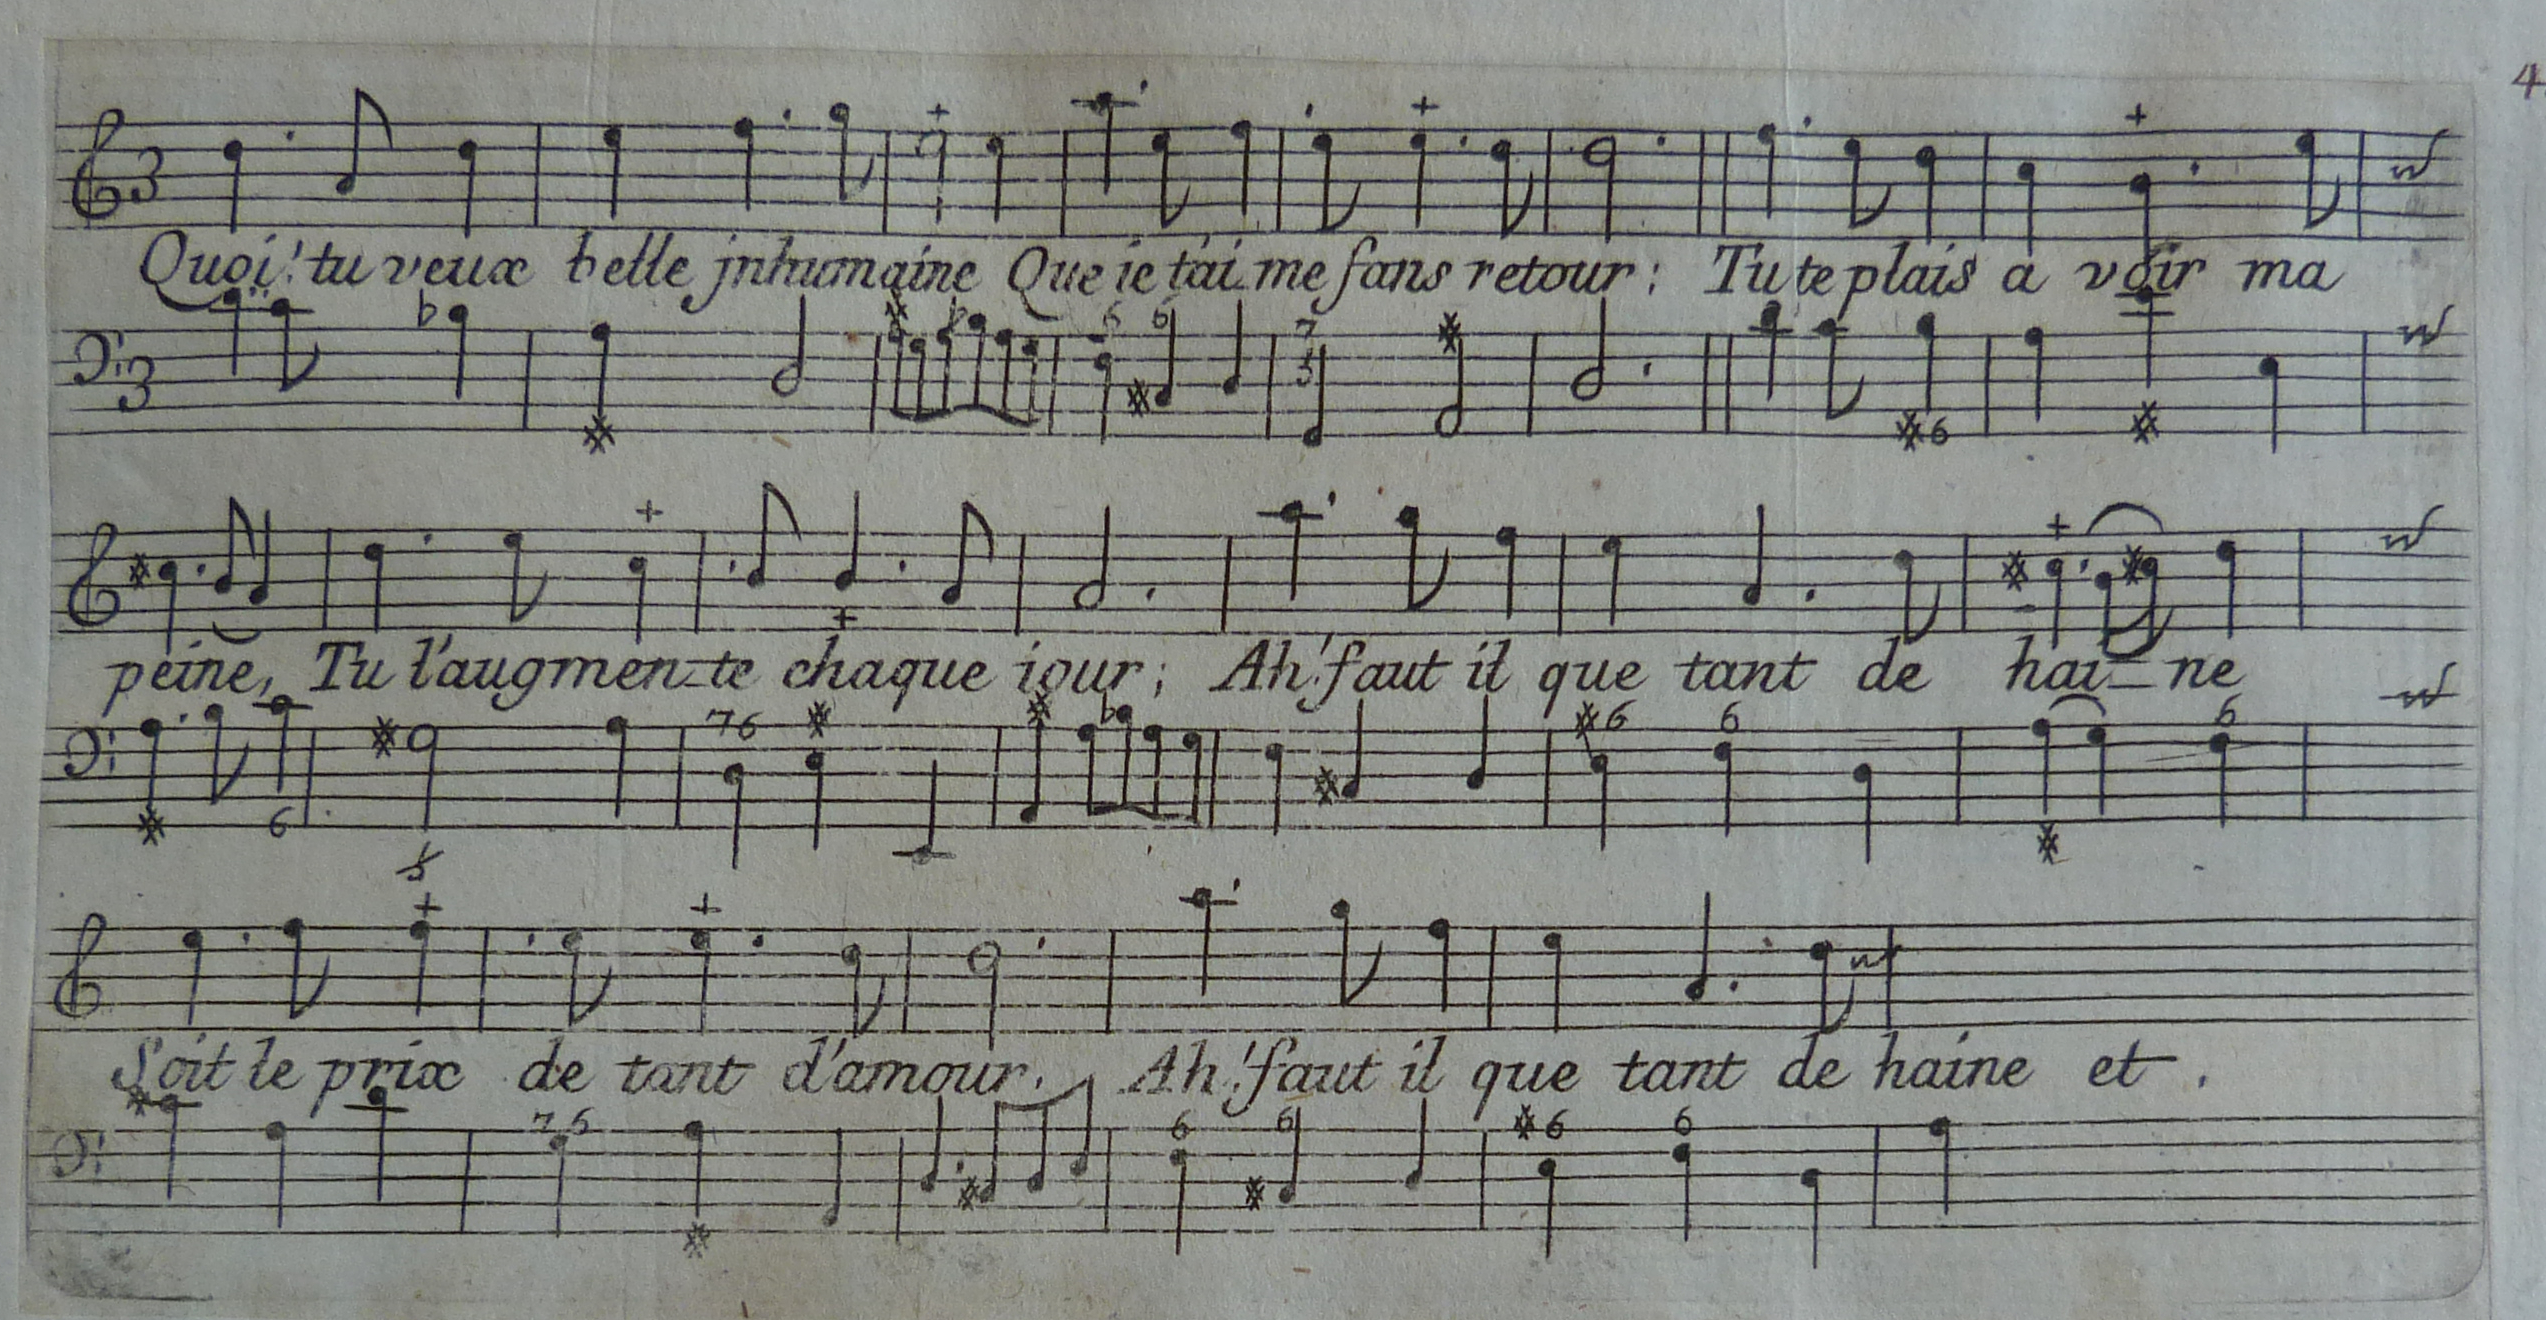 4
Quoi! tu veux belle jnhumaine Que ie t'ai_me sans retour; Tu te plais a voir ma
peine, Tu l'augmen_te chaque iour; Ah! faut il que tant de hai_ne
Soit le prix de tant d'amour. Ah! faut il que tant de haine et.